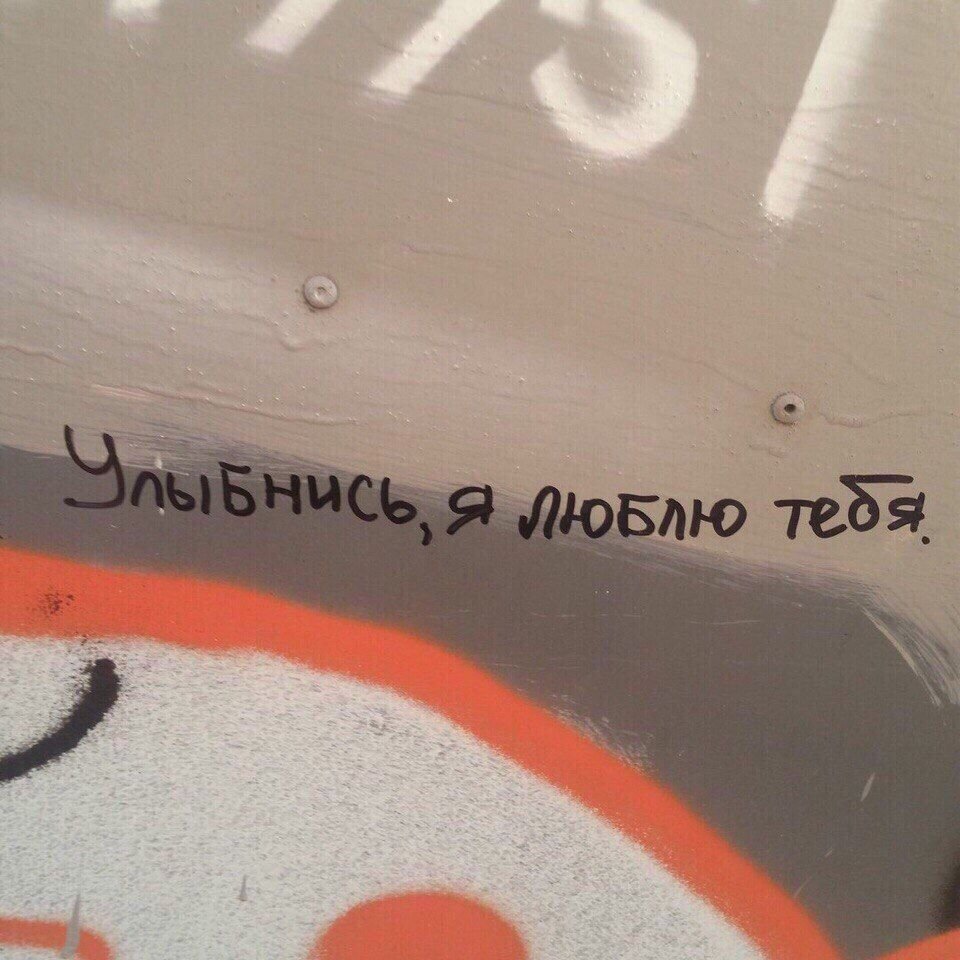 Улыбнись, я люблю тебя.